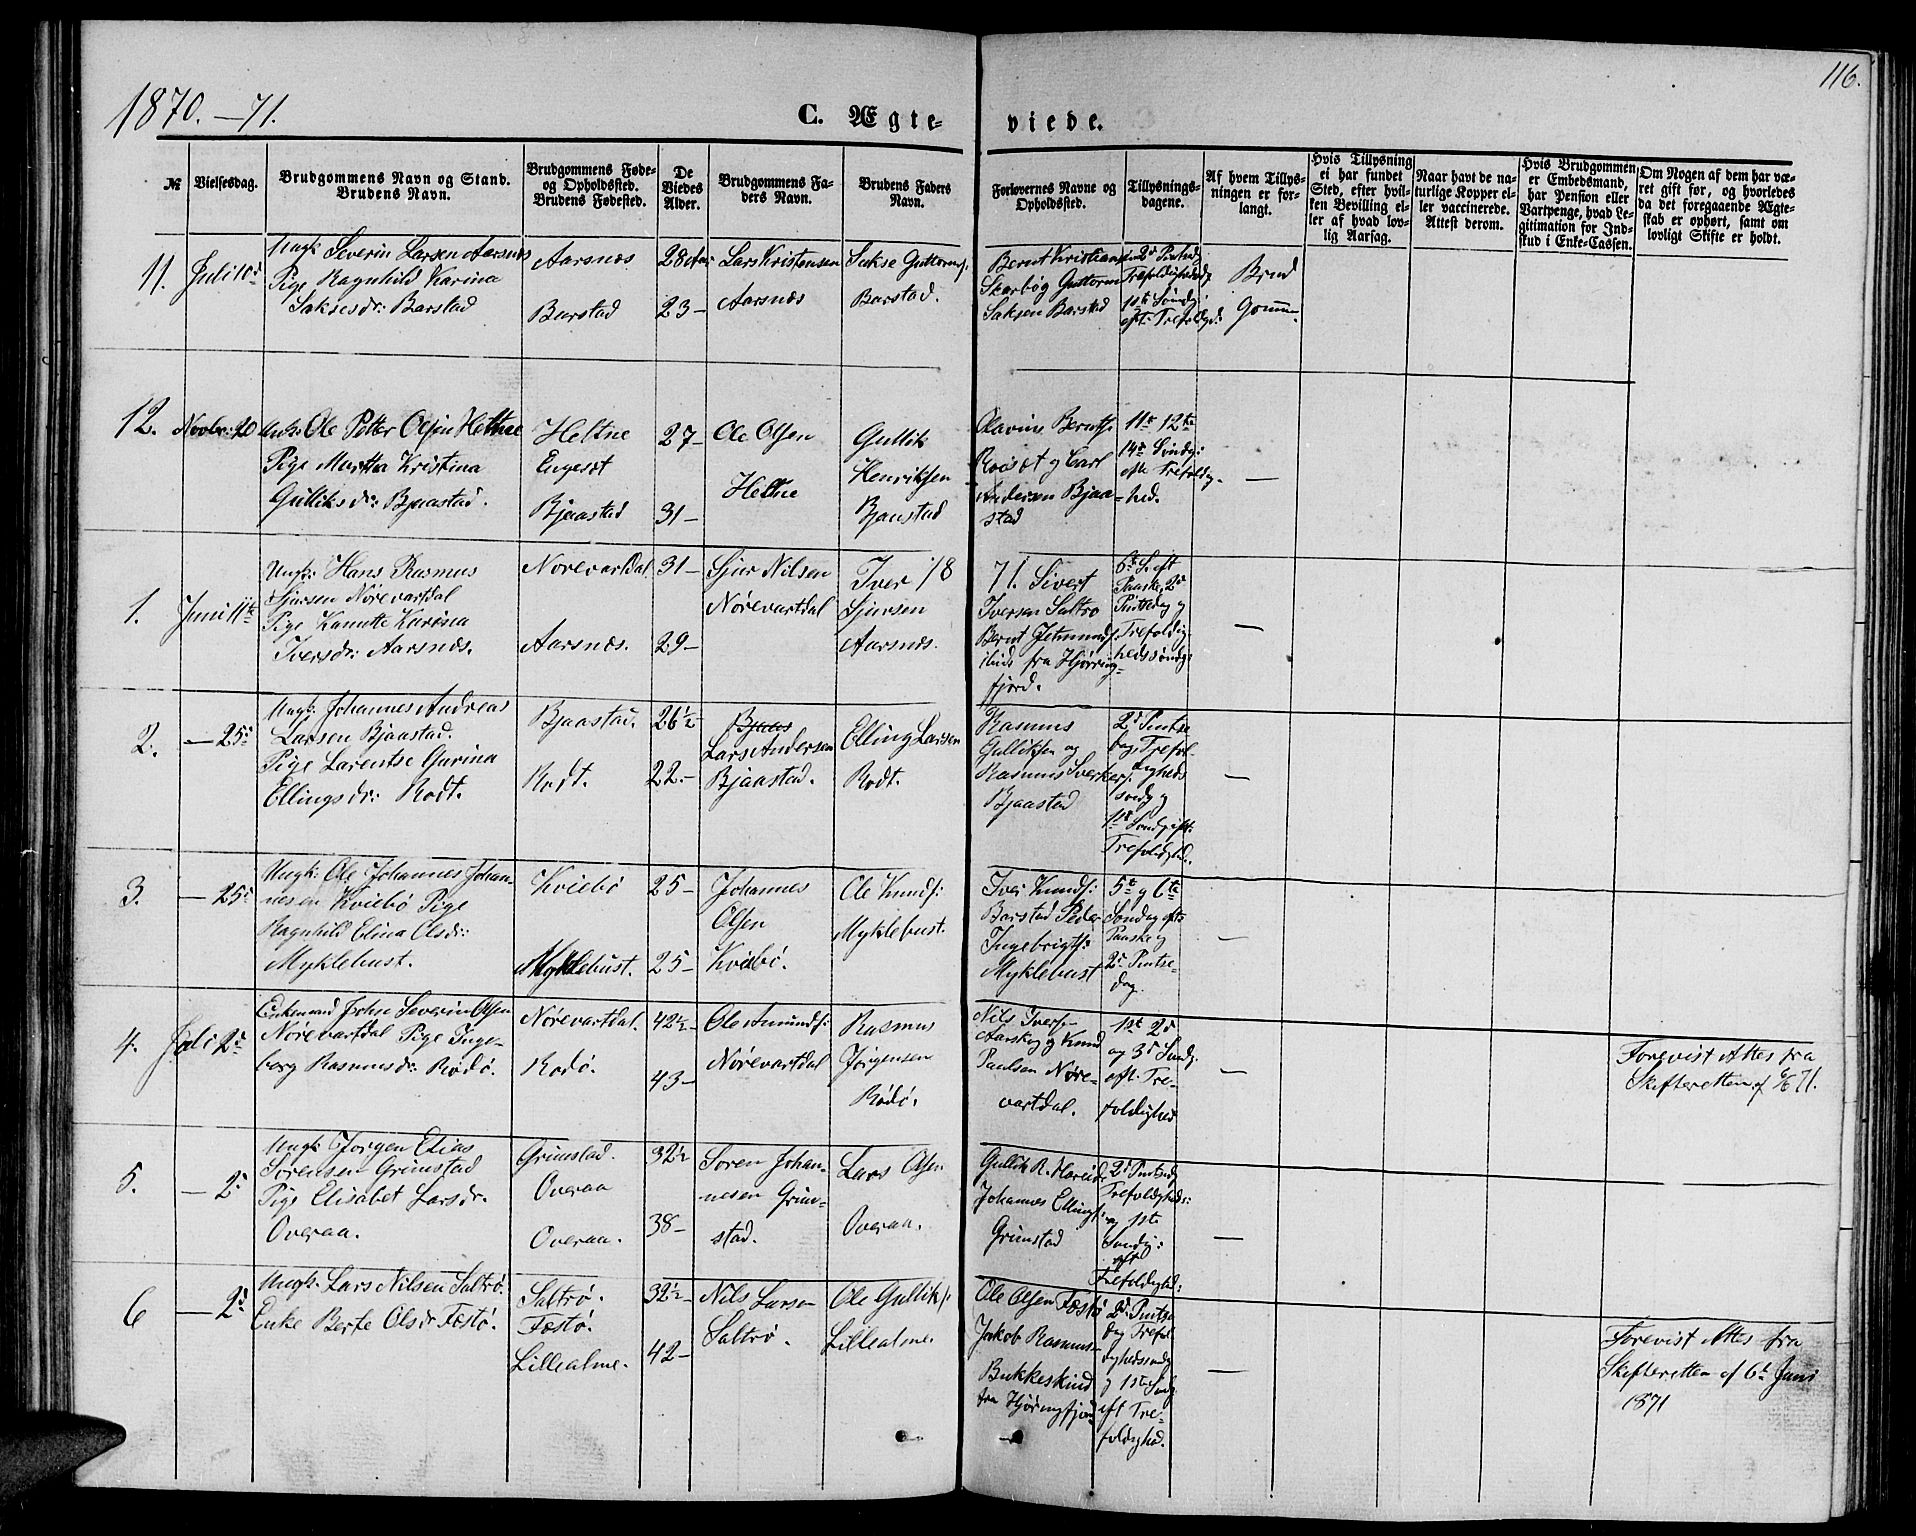 1870.—71.
C. Ægte-
viede.
116.
№
Vielsesdag.
Brudgommens Navn og Stand.
Brudens Navn.
Brudgommens Føde-
og Opholdssted.
Brudens Fødested.
De
Viedes
Alder.
Brudgommens Fa-
ders Navn.
Brudens Faders
Navn.
Forlovernes Navne og
Opholdssted.
Tillysnings-
dagene.
Af hvem Tillys-
ningen er for-
langt.
Hvis Tillysning
ei har fundet
Sted, efter hvil-
ken Bevilling el-
ler af hvad lov-
lig Aarsag.
Naar havt de na-
turlige Kopper el-
ler vaccinerede.
Attest derom.
Hvis Brudgommen
er Embedsmand,
har Pension eller
Vartpenge, hvad Le-
gitimation for Ind-
skud i Enke-Cassen.
Om Nogen af dem har væ-
ret gift før, og hvorledes
da det foregaaende Ægte-
skab er ophørt, samt om
lovligt Skifte er holdt.
11.
Juli 10de
Ungk: Severin Larsen Aarsnes
Pige Ragnhild Karina
Saksesdr: Barstad
Aarsnes
Barstad
28 Aar
23 —
Lars Kristensen
Aarsnes
Sakse Guttorms.
Barstad.
Bernt Kristian
Skorbøg Guttorm
Saksen Barstad
2d Pintsdg
Trefoldighedsdg
1ste Søndg:
eft. Trefoldgd:
Brud
Gomm.
12.
Novbr: 20
Ungk: Ole Petter Olsen Heltne
Pige Martha Kristina
Gulliksdr: Bjaastad.
Heltne
Engeset
Bjaastad
27 —
31 —
Ole Olsen
Heltne
Gullik
Henriksen
Bjaastad
Olavine Berntss
Roiset og Carl
Andersen Bjaa-
stad
11te 12te
14de Søndg:
eft. Trefoldig-
hed.
—
1.
Juni 11te
Ungk: Hans Rasmus
Sjursen Nørevartdal
Pige Kanutte Karina
Iversdr: Aarsnes.
Nørevartdal
Aarsnes.
31 —
29 —
Sjur Nilsen
Nørevartdal
Iver
Sjursen
Aarsnes.
18
71.
Sivert
Iversen Saltrø
Bernt Jetmunds.
Lied fra Hjøring-
fjord.
6te S. eft
Paaske, 2d
Pintsedag og
Trefoldig-
hedssøndg:
—
2.
— 25de
Ungk: Johannes Andreas
Larsen Bjaastad.
Pige Larentse Gurina
Ellingsdr: Rødt.
Bjaastad.
Rødt.
26½
22. —
Bjaas
Lars Andersen
Bjaastad.
Elling Larsen
Rødt.
Rasmus
Gulliksen og
Rasmus Sverkers.
Bjaastad
2d Pintse
dag, Trefol-
digheds
søndg og
1ste Søndg eft:
Trefoldighd.
—
3.
— 25de
Ungk: Ole Johannes Johan-
nesen Kviebø Pige
Ragnhild Elina Olsdr:
Myklebust.
Kviebø
Myklebust.
25 —
25 —
Johannes
Olsen
Kviebø.
Ole Knuds:
Myklebust.
Iver Knuds:
Barstad Peder
Ingebrigts:
Myklebust
5te og 6te
Søndag eft:
Paaske og
2d Pintse-
dag.
—
4.
Juli 2de
Enkemand John Severin Olsen
Nørevartdal Pige Inge-
borg Rasmusdr: Rødø.
Nørevartdal.
Rødø.
42½
43 —
Ole Amunds:
Nørevartdal
Rasmus
Jørgensen
Rødø.
Nils Ivers.
Aarskog og Knud
Paulsen Nøre-
vartdal.
1ste 2d
og 3d Søndg:
eft. Tre-
foldighed
—
Forevist Attes fra
Skifteretten af 6/6 71.
5.
— 2de
Ungk: Jørgen Elias
Sørensen Grimstad
Pige Elisabet Larsdr.
Overaa.
Grimstad.
Overaa
Overaa.
32½
38 —
Søren Johan-
nesen Grim-
stad.
Lars Olsen
Overaa.
Gullik R. Hareide
Johannes Ellings:
Grimstad
2d Pintsdg
Trefoldigheds:
og 1ste
Søndg:
eft
Trefoldighd:
—
6
— 2de
Ungk: Lars Nilsen Saltrø.
Enke Berte Olsdr Festø.
Saltrø.
Festø.
Lillealme.
32½
42 —
Nils Larsen
Saltrø.
Ole Gulliks.
Lillealme.
Ole Olsen Festø
Jakob Rasmus-
Bukkeskind
fra Hjøringfjord
2d Pintse
dag Trefol-
dighedssøndg
og 1ste Søndg
eft Tre-
foldighed.
—
Forevist Attes fra
Skifteretten af 6te Juni
1871